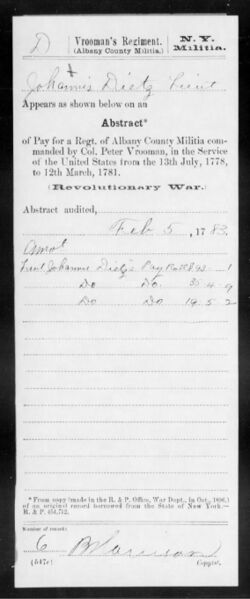 D
Vrooman's Regiment.
(Albany County Militia.)
N. Y.
Militia.
Johannis Dietz Lieut
Appears as shown below on an
Abstract*
of Pay for a Regt. of Albany County Militia com-
manded by Col. Peter Vrooman, in the Service
of the United States from the 13th July, 1778,
to 12th March, 1781.
(Revolutionary War.)
Abstract audited,
Feb 5, 1783
Amot
Lieut Johannis Dietz's Pay Roll 1
Do Do 35 4 9
Do Do 19 5 2
*From copy (made in the R. & P. Office, War Dept., in Oct., 1896,)
of an original record borrowed from the State of New York.—
R. & P. 436,712.
Number of records:
6
(547e)
Copyist.